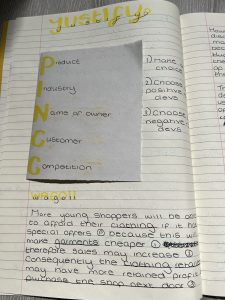 Justify
Product
Industry
Name of owner
Customer
Competition
1) Make
choice
2) Choose
positive
deve
3) Choose
negative
devs.
wagoll
More young shoppers will be able
to afford their clothing if it has
special offers ② because this will
make garments cheaper ①
therefore sales may increase ①.
Consequently the clothing retailer
may have more retained profit
purchase the shop next door ③